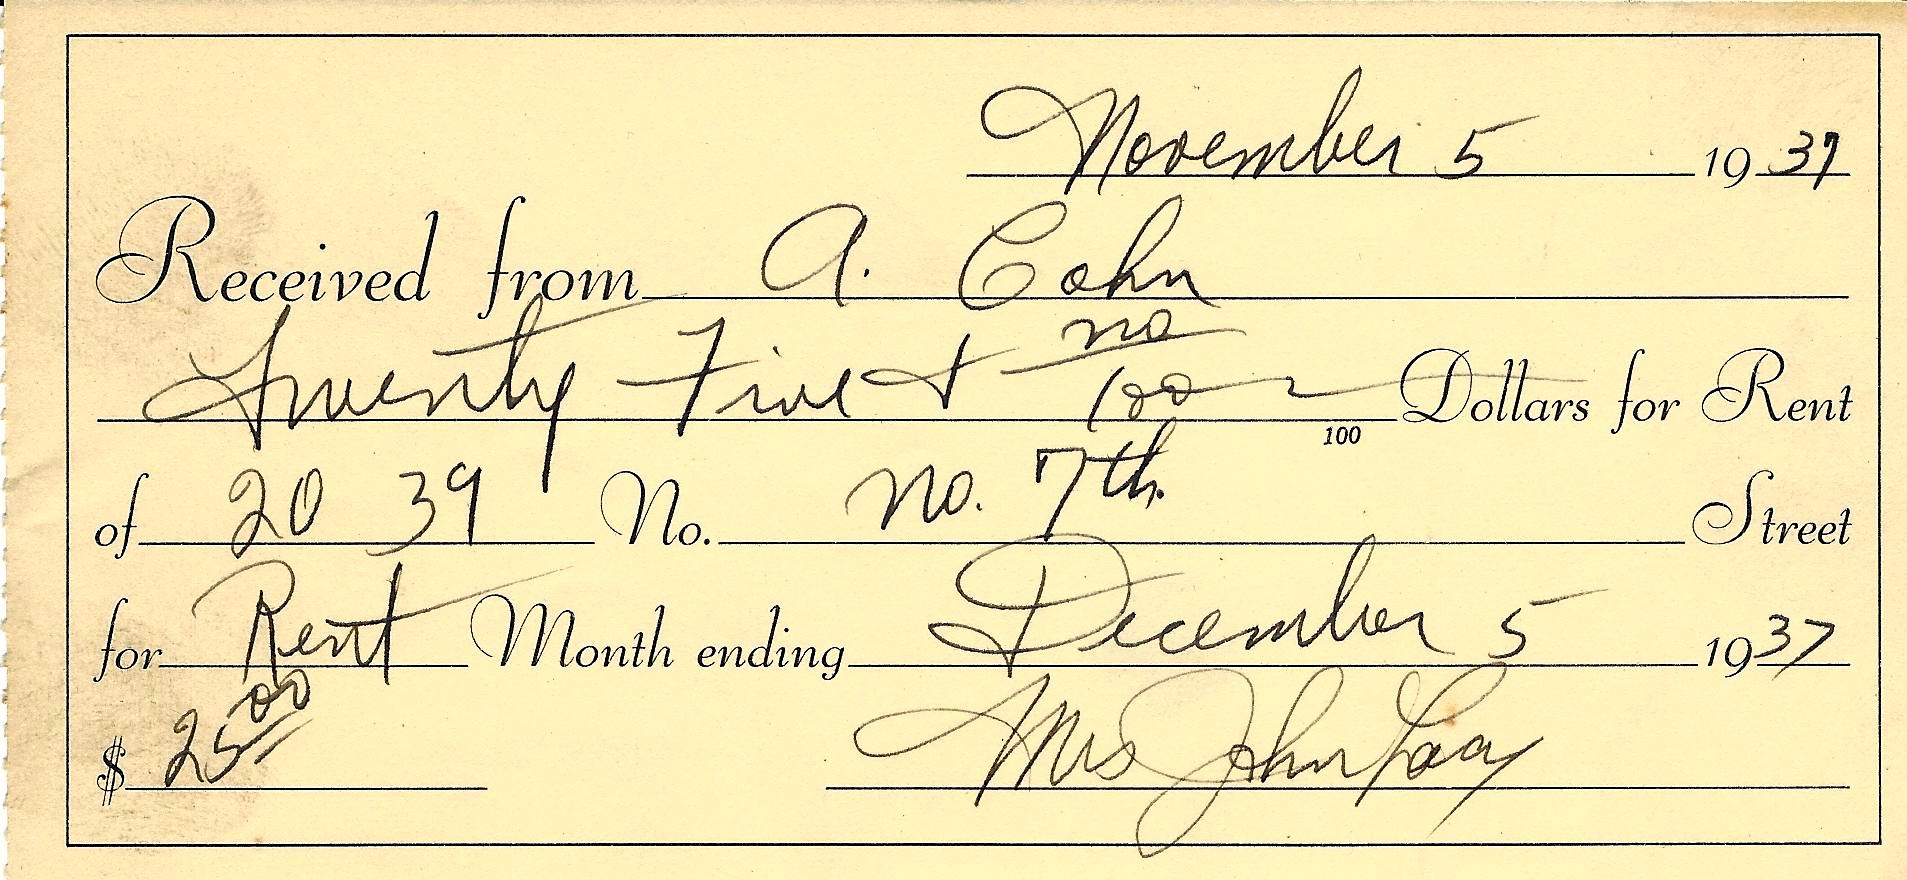 November 5 1937
Received from A. Cohn
Twenty Five & no/100 Dollars for Rent
100
of 20 39 No. no. 7th. Street
for Rent Month ending December 5 1937
$ 25 00 Mrs John